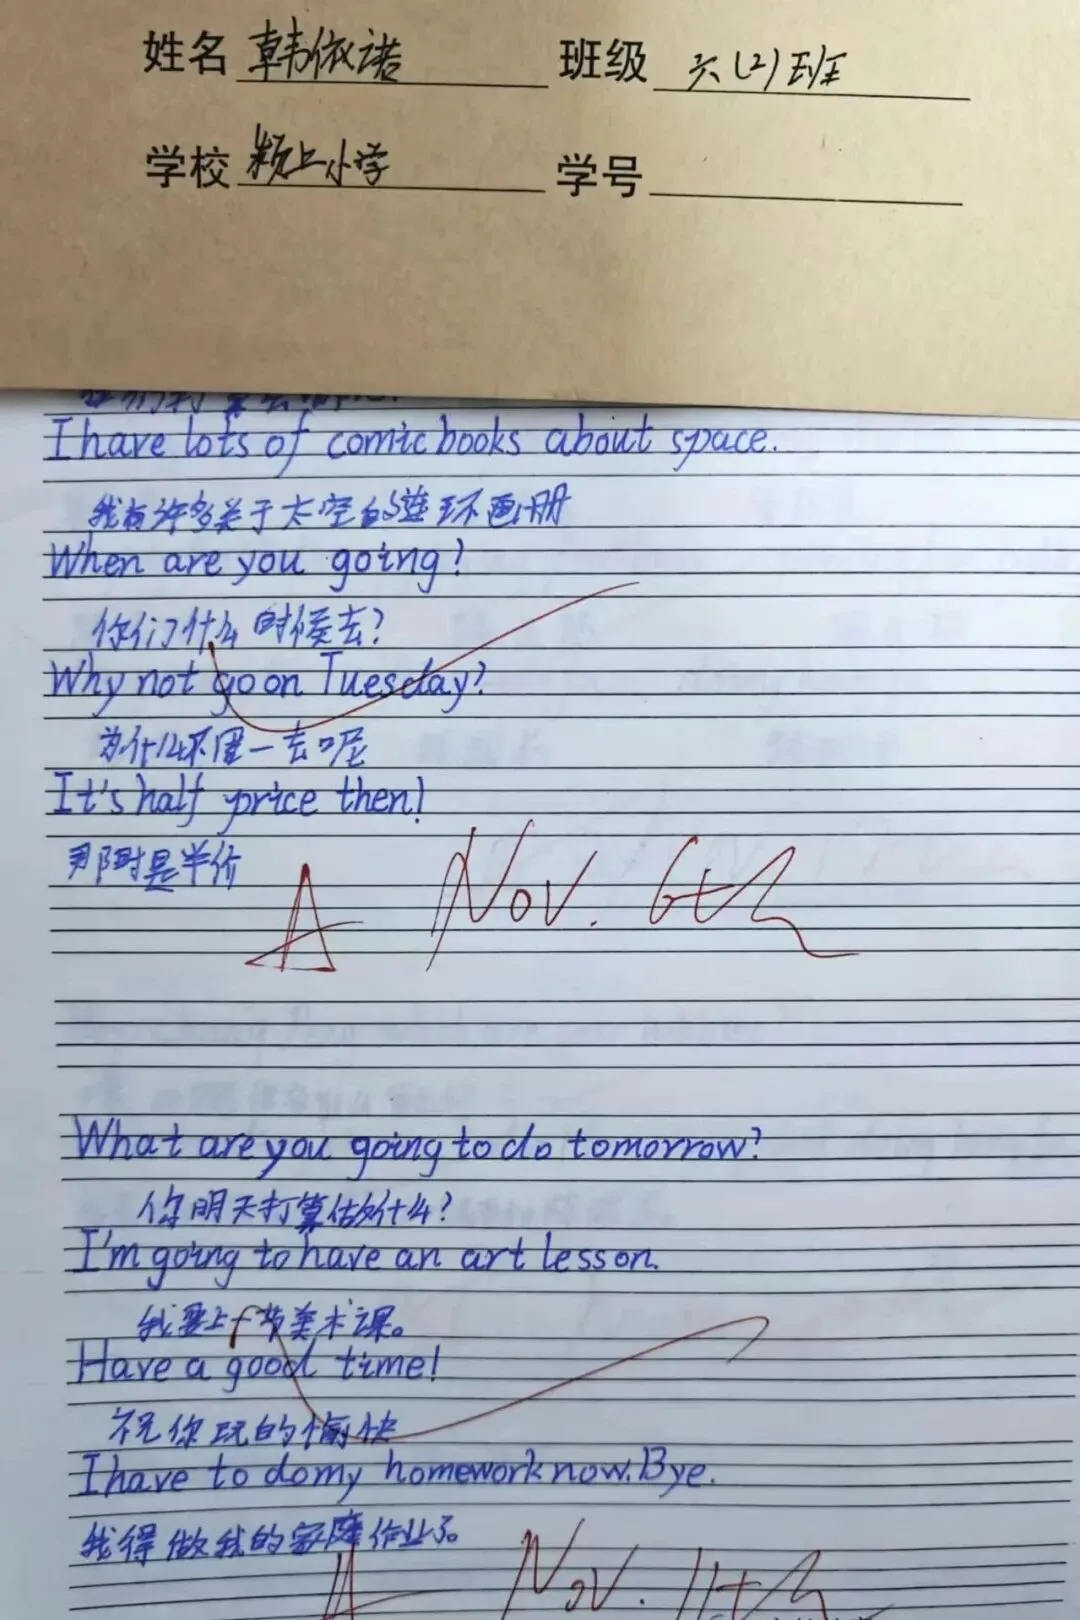 姓名 韩依诺 班级 六(2)班
学校 颍上小学 学号
I have lots of comic books about space.
我有许多关于太空的连环画册
When are you going?
你们什么时候去?
Why not go on Tuesday?
为什么不周一去呢
It's half price then!
那时是半价
A Nov. 6th
What are you going to do tomorrow?
你明天打算做什么?
I'm going to have an art lesson.
我要上一节美术课。
Have a good time!
祝你玩的愉快
I have to do my homework now. Bye.
我得做我的家庭作业了。
A Nov. 11th